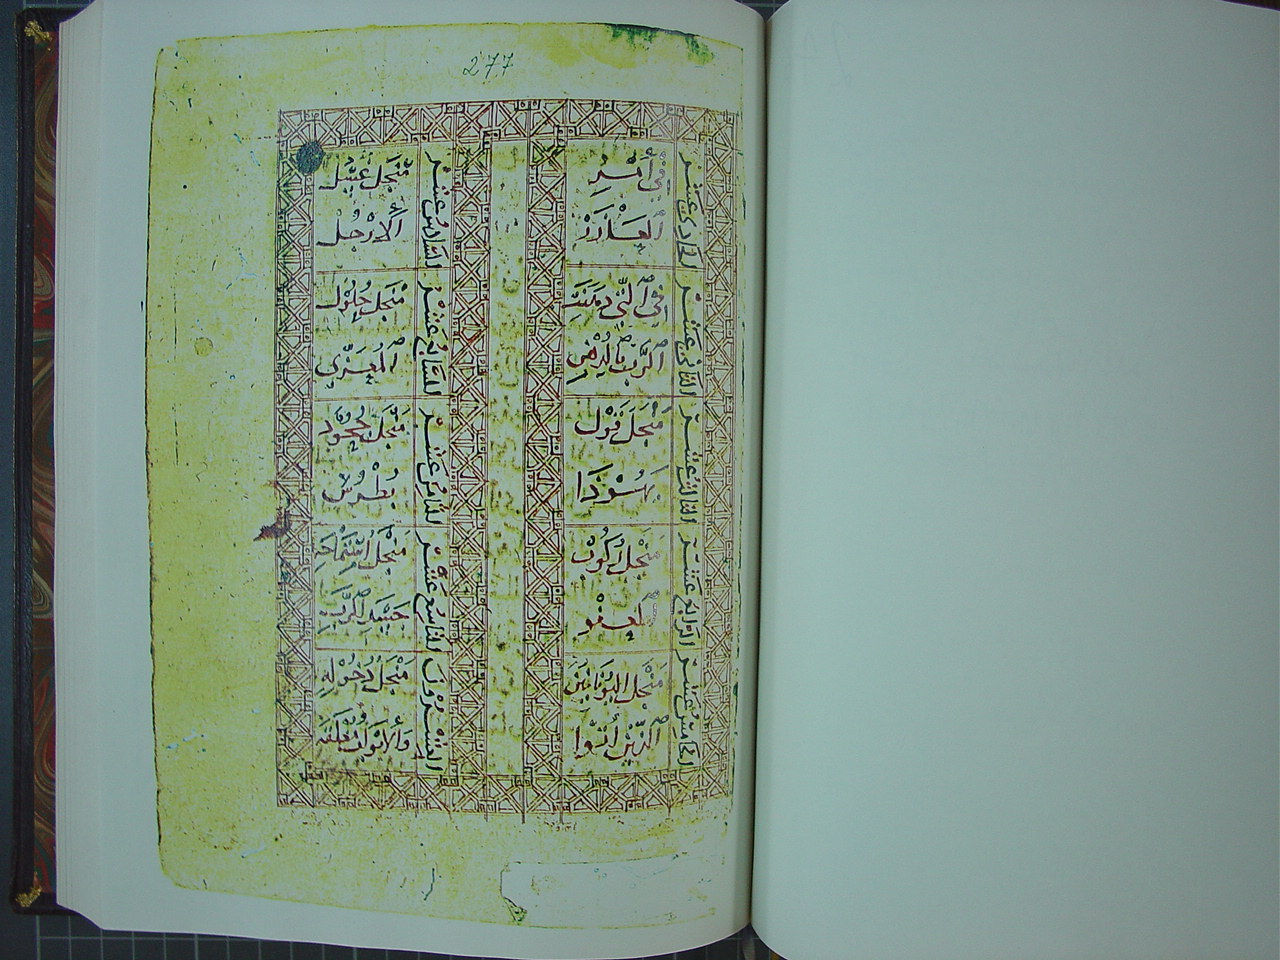 277
الحادي عشر
في أمر
العازر
الثاني عشر
في التي دهنت
الرب بالدهن
الثالث عشر
منجل قول
يهودا
الرابع عشر
منجل ركوب
العفو
الخامس عشر
منجل اليونانين
الذين أتوا
السادس عشر
منجل غسل
الأرجل
السابع عشر
منجل حلول
المعزي
الثامن عشر
منجل جحود
بطرس
التاسع عشر
منجل استماحة
جسد الرب
العشرون
منجل دخوله
والأبواب مغلقة